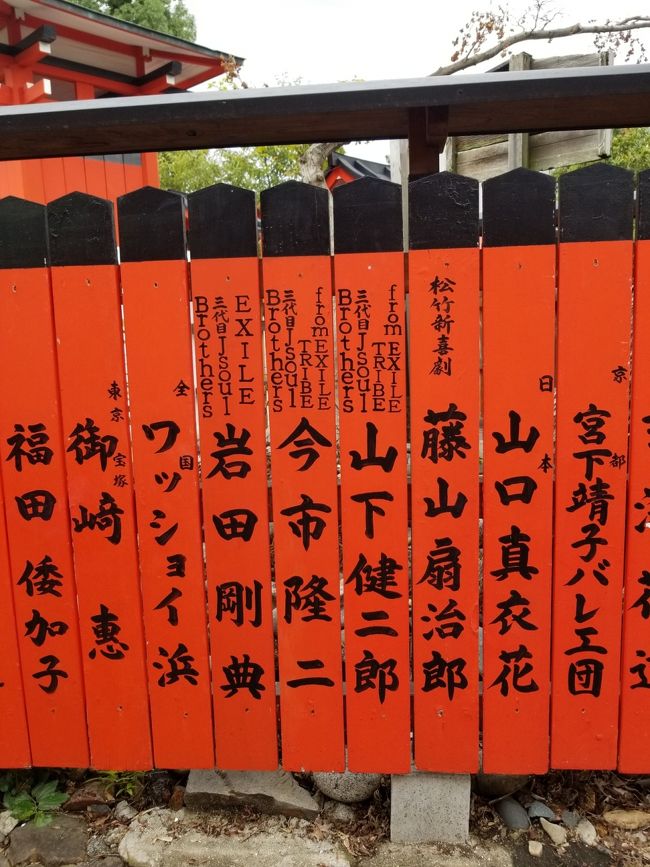 京都
宮下靖子バレエ団
日本
山口真衣花
松竹新喜劇
藤山扇治郎
from EXILE
TRIBE
三代目Jsoul
Brothers
山下健二郎
from EXILE
TRIBE
三代目Jsoul
Brothers
今市隆二
EXILE
三代目Jsoul
Brothers
岩田剛典
全国
ワッショイ浜
東京宝塚
御崎惠
福田倭加子